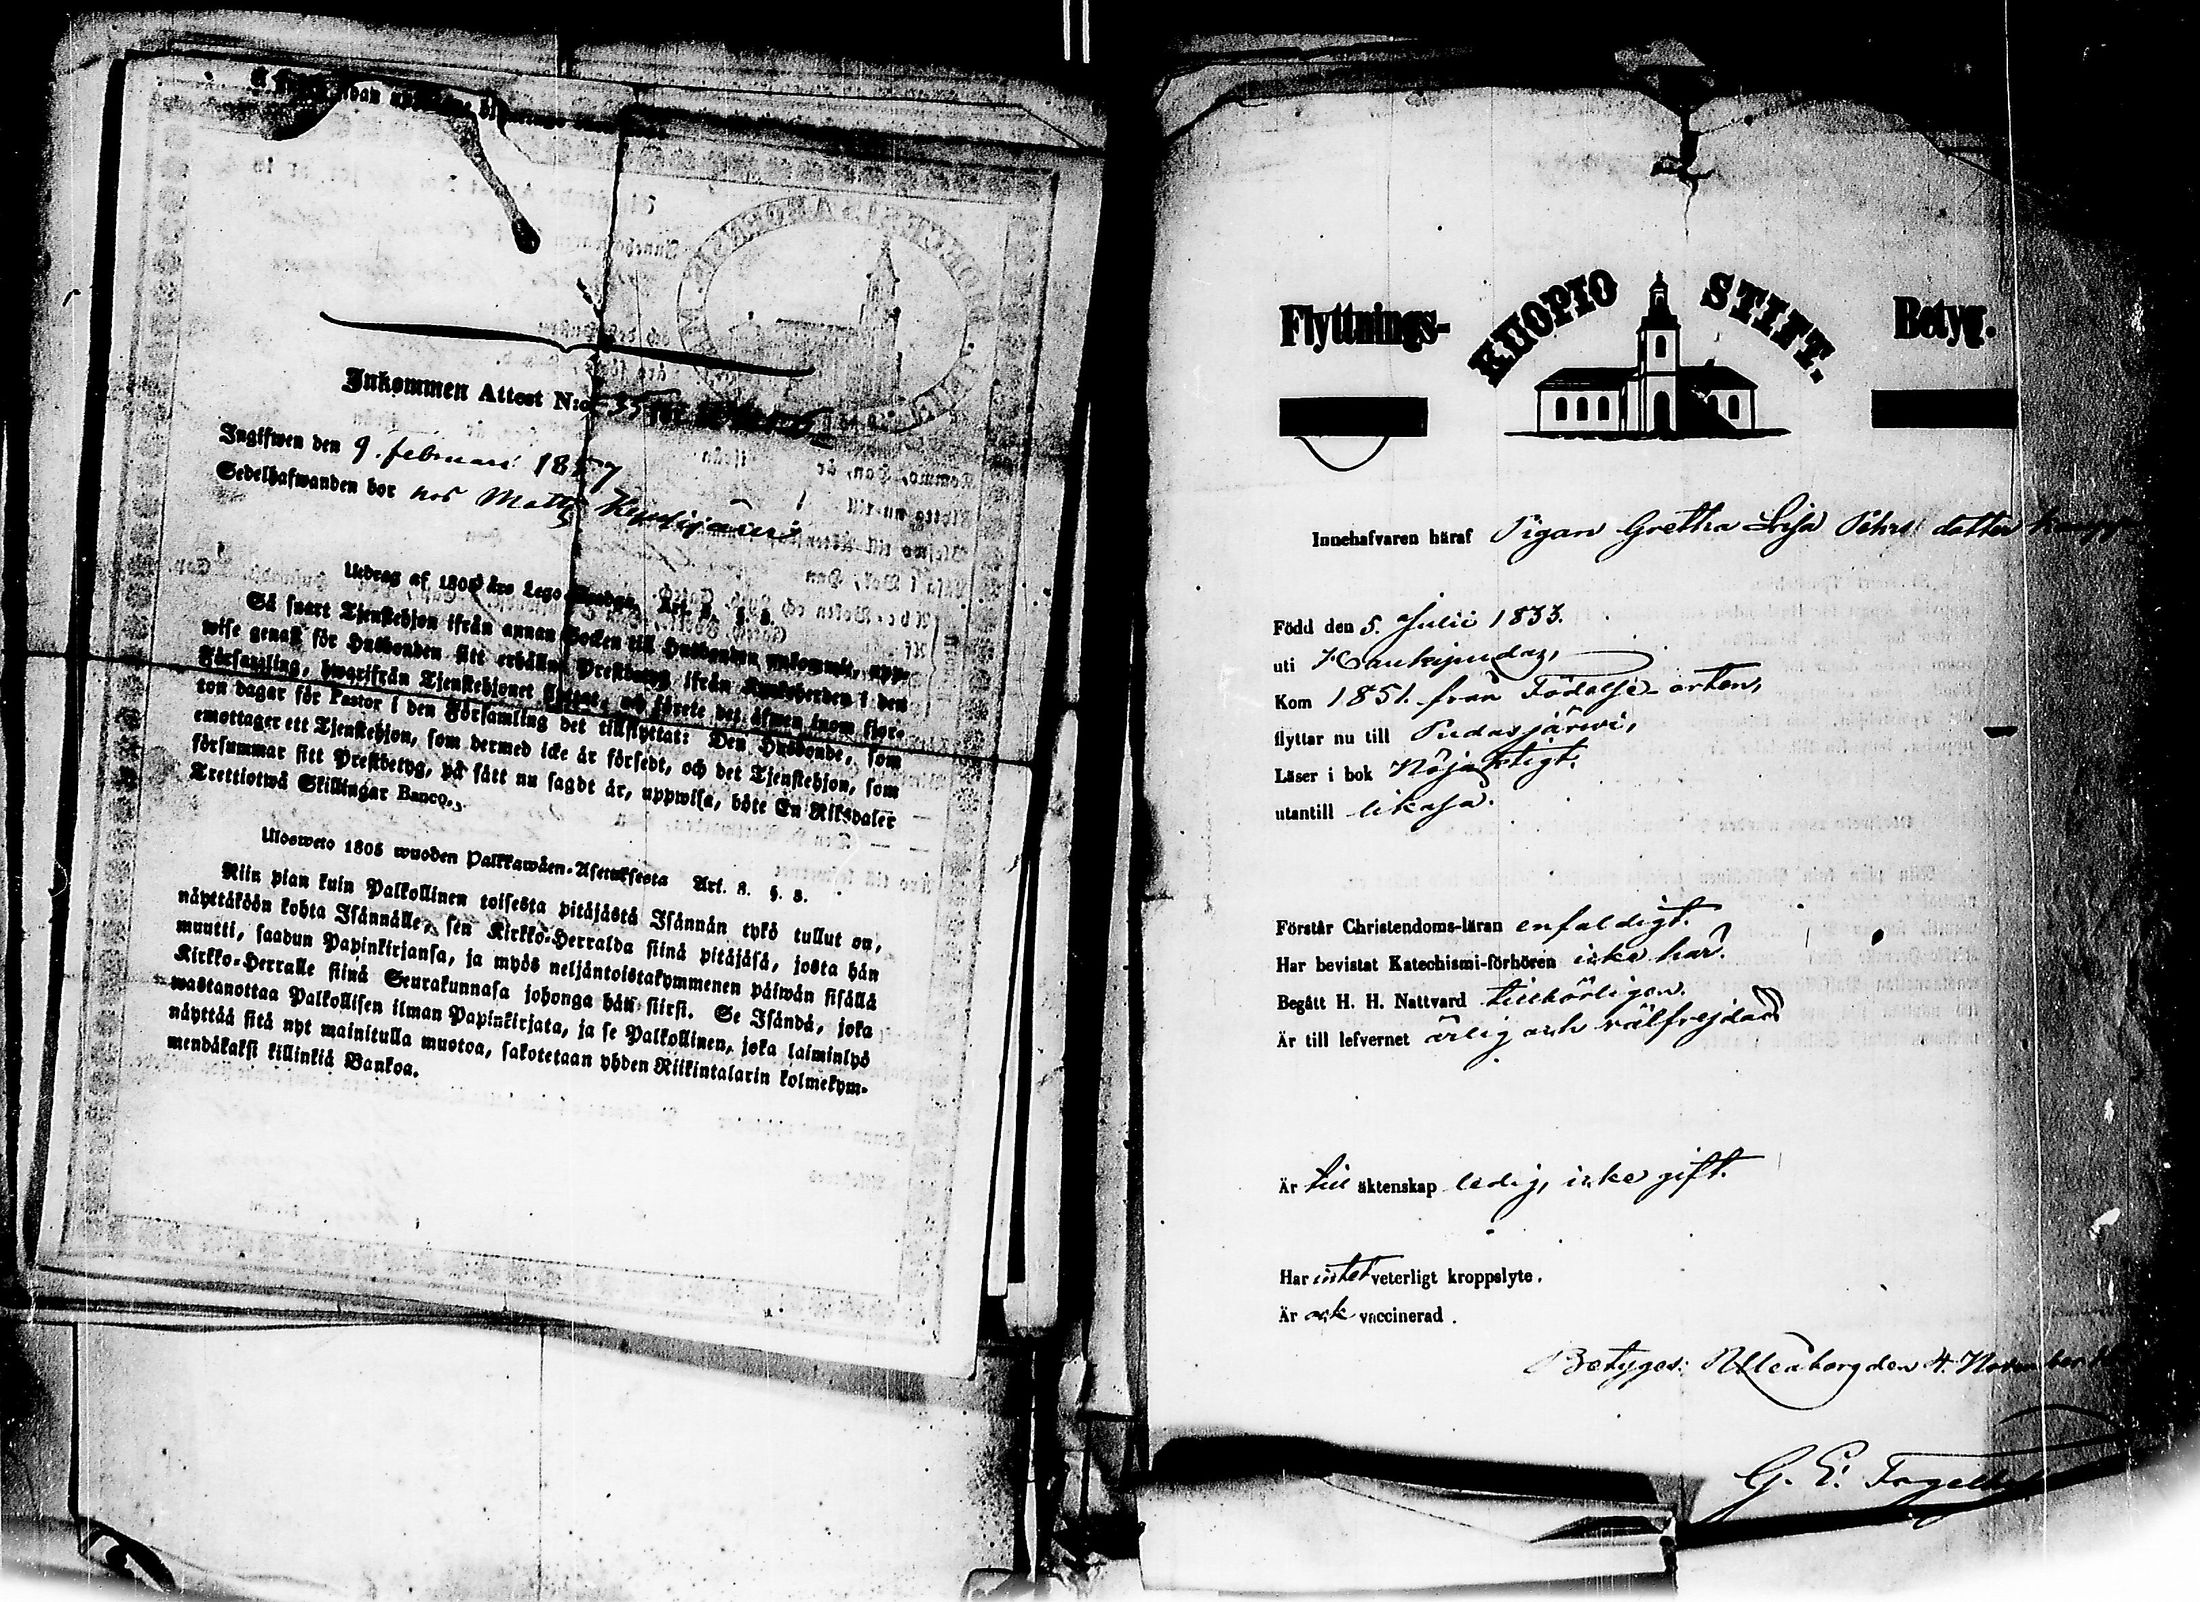 Inkommen Attest N:o 35
Ingifwen den 9. februari 1857
Sedelhafwanden bor hos Matts
Utdrag af 1805 års Lego-Stadga, Art. 8. §. 3.
Så snart Tjenstehjon ifrån annan Socken till Husbonden ankommit, upp-
wise genast för Husbonden sitt erhållna Prestbetyg ifrån Kyrkoherden i den
Församling, hwarifrån Tjenstehjonet flyttat, och förete det äfwen inom fjor-
ton dagar för Pastor i den Församling det tillflyttat: Den Husbonde, som
emottager ett Tjenstehjon, som dermed icke är försedt, och det Tjenstehjon, som
försummar sitt Prestbetyg, på sätt nu sagdt är, uppwisa, böte En Riksdaler
Trettiotwå Skillingar Banco.
Ulosweto 1805 wuoden Palkkawäen-Asetuksesta Art. 8. §. 3.
Niin pian kuin Palkollinen toisesta pitäjästä Isännän tykö tullut on,
näyttäköön kohta Isännälle, sen Kirkko-Herralda siinä pitäjäsä, josta hän
muutti, saadun Papinkirjansa, ja myös neljäntoistakymmenen päiwän sisällä
Kirkko-Herralle siinä Seurakunnasa johonga hän siirsi. Se Isändä, joka
wastanottaa Palkollisen ilman Papinkirjata, ja se Palkollinen, joka laiminlyö
näyttää sitä nyt mainitulla muotoa, sakotetaan yhden Riikintalarin kolmekym-
mendäkaksi killinkiä Bankoa.
Flyttnings- KUOPIO STIFT. Betyg.
Innehafvaren häraf Pigan Gretha Lisa Pehrs dotter
Född den 5. Julii 1833.
uti Haukipudas,
Kom 1851. från Födelse-orten,
flyttar nu till Pudasjärwi,
Läser i bok Nöjaktigt.
utantill likaså.
Förstår Christendoms-läran enfaldigt.
Har bevistat Katechismi-förhören icke har.
Begått H. H. Nattvard tillbörligen.
Är till lefvernet ärlig och välfrejdad
Är till äktenskap ledig, icke gift.
Har intet veterligt kroppslyte.
Är ock vaccinerad.
Betyges: Uleåborg den 4. November
G. E.